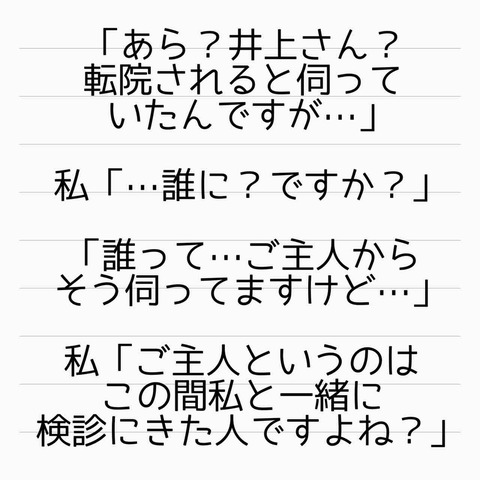 「あら？井上さん？
転院されると伺って
いたんですが…」
私「…誰に？ですか？」
「誰って…ご主人から
そう伺ってますけど…」
私「ご主人というのは
この間私と一緒に
検診にきた人ですよね？」